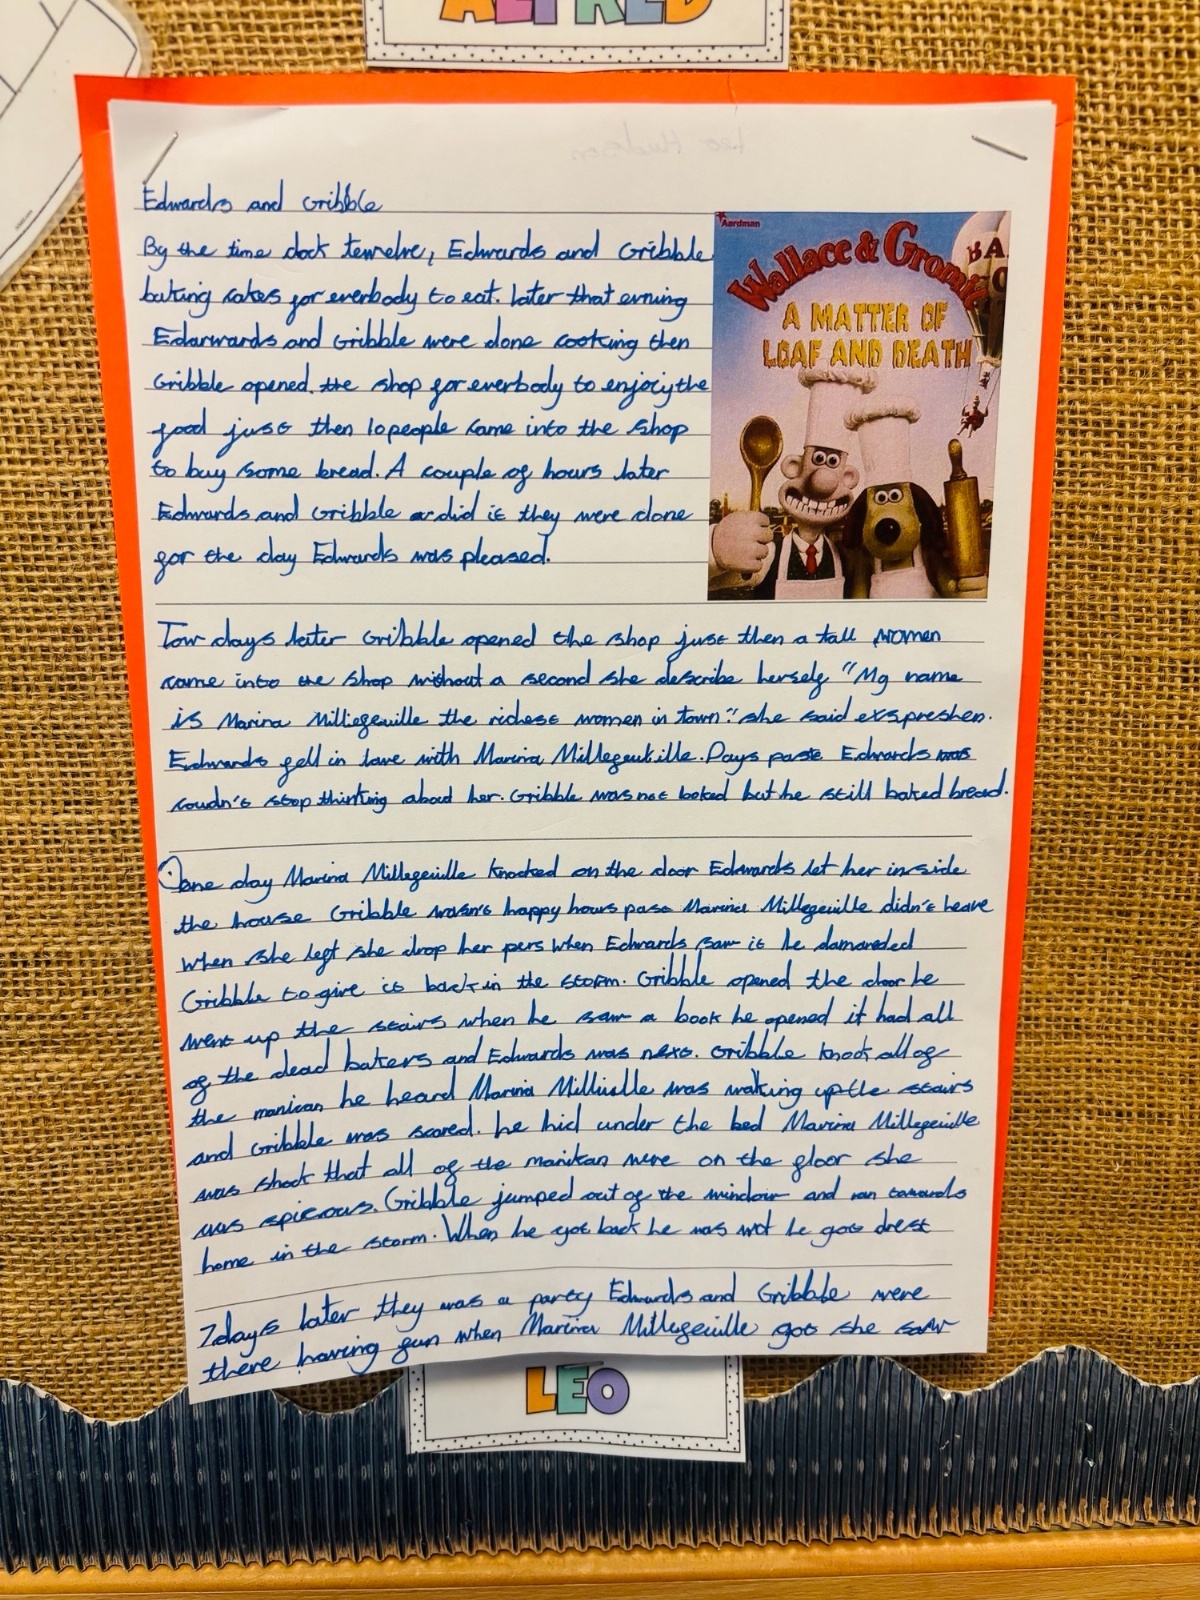 ALFRED
Edwards and Gribble
By the time clock tewelve, Edwards and Gribble
baking cakes for everbody to eat. Later that evning
Edarwards and Gribble were done cooking then
Gribble opened the shop for everbody to enjoiythe
food just then 10people came into the shop
to buy some bread. A couple of hours later
Edwards and Gribble did it they were done
for the day Edwards was pleased.
Aardman
Wallace & Gromit
A MATTER OF
LOAF AND DEATH
Tow days later Gribble opened the shop just then a tall women
came into the shop without a second she describe herself "My name
is Marina Milliegeville the richest women in town." she said exspreshen.
Edwards fell in love with Marina Millegeutille. Days paste Edwards was
coudn't stop thinking aboud her. Gribble was not boked but he still baked bread.
One day Marina Millegeville knocked on the door Edwards let her inside
the house Gribble wasn't happy hours past Marina Millegeville didn't leave
when she left she drop her pers when Edwards saw it he damareded
Gribble to give it back in the storm. Gribble opened the door he
went up the stairs when he saw a book he opened it had all
of the dead bakers and Edwards was next. Gribble knock all of
the manican he heard Marina Milliulle was walking up the stairs
and Gribble was scared. he hid under the bed Marina Millegeville
was shock that all of the manikan were on the floor she
was spicrous. Gribble jumped out of the window and ran towards
home in the storm. When he got back he was wot he got drest
7days later they was a party Edwards and Gribble were
there having fun when Marina Millegeville got she saw
LEO